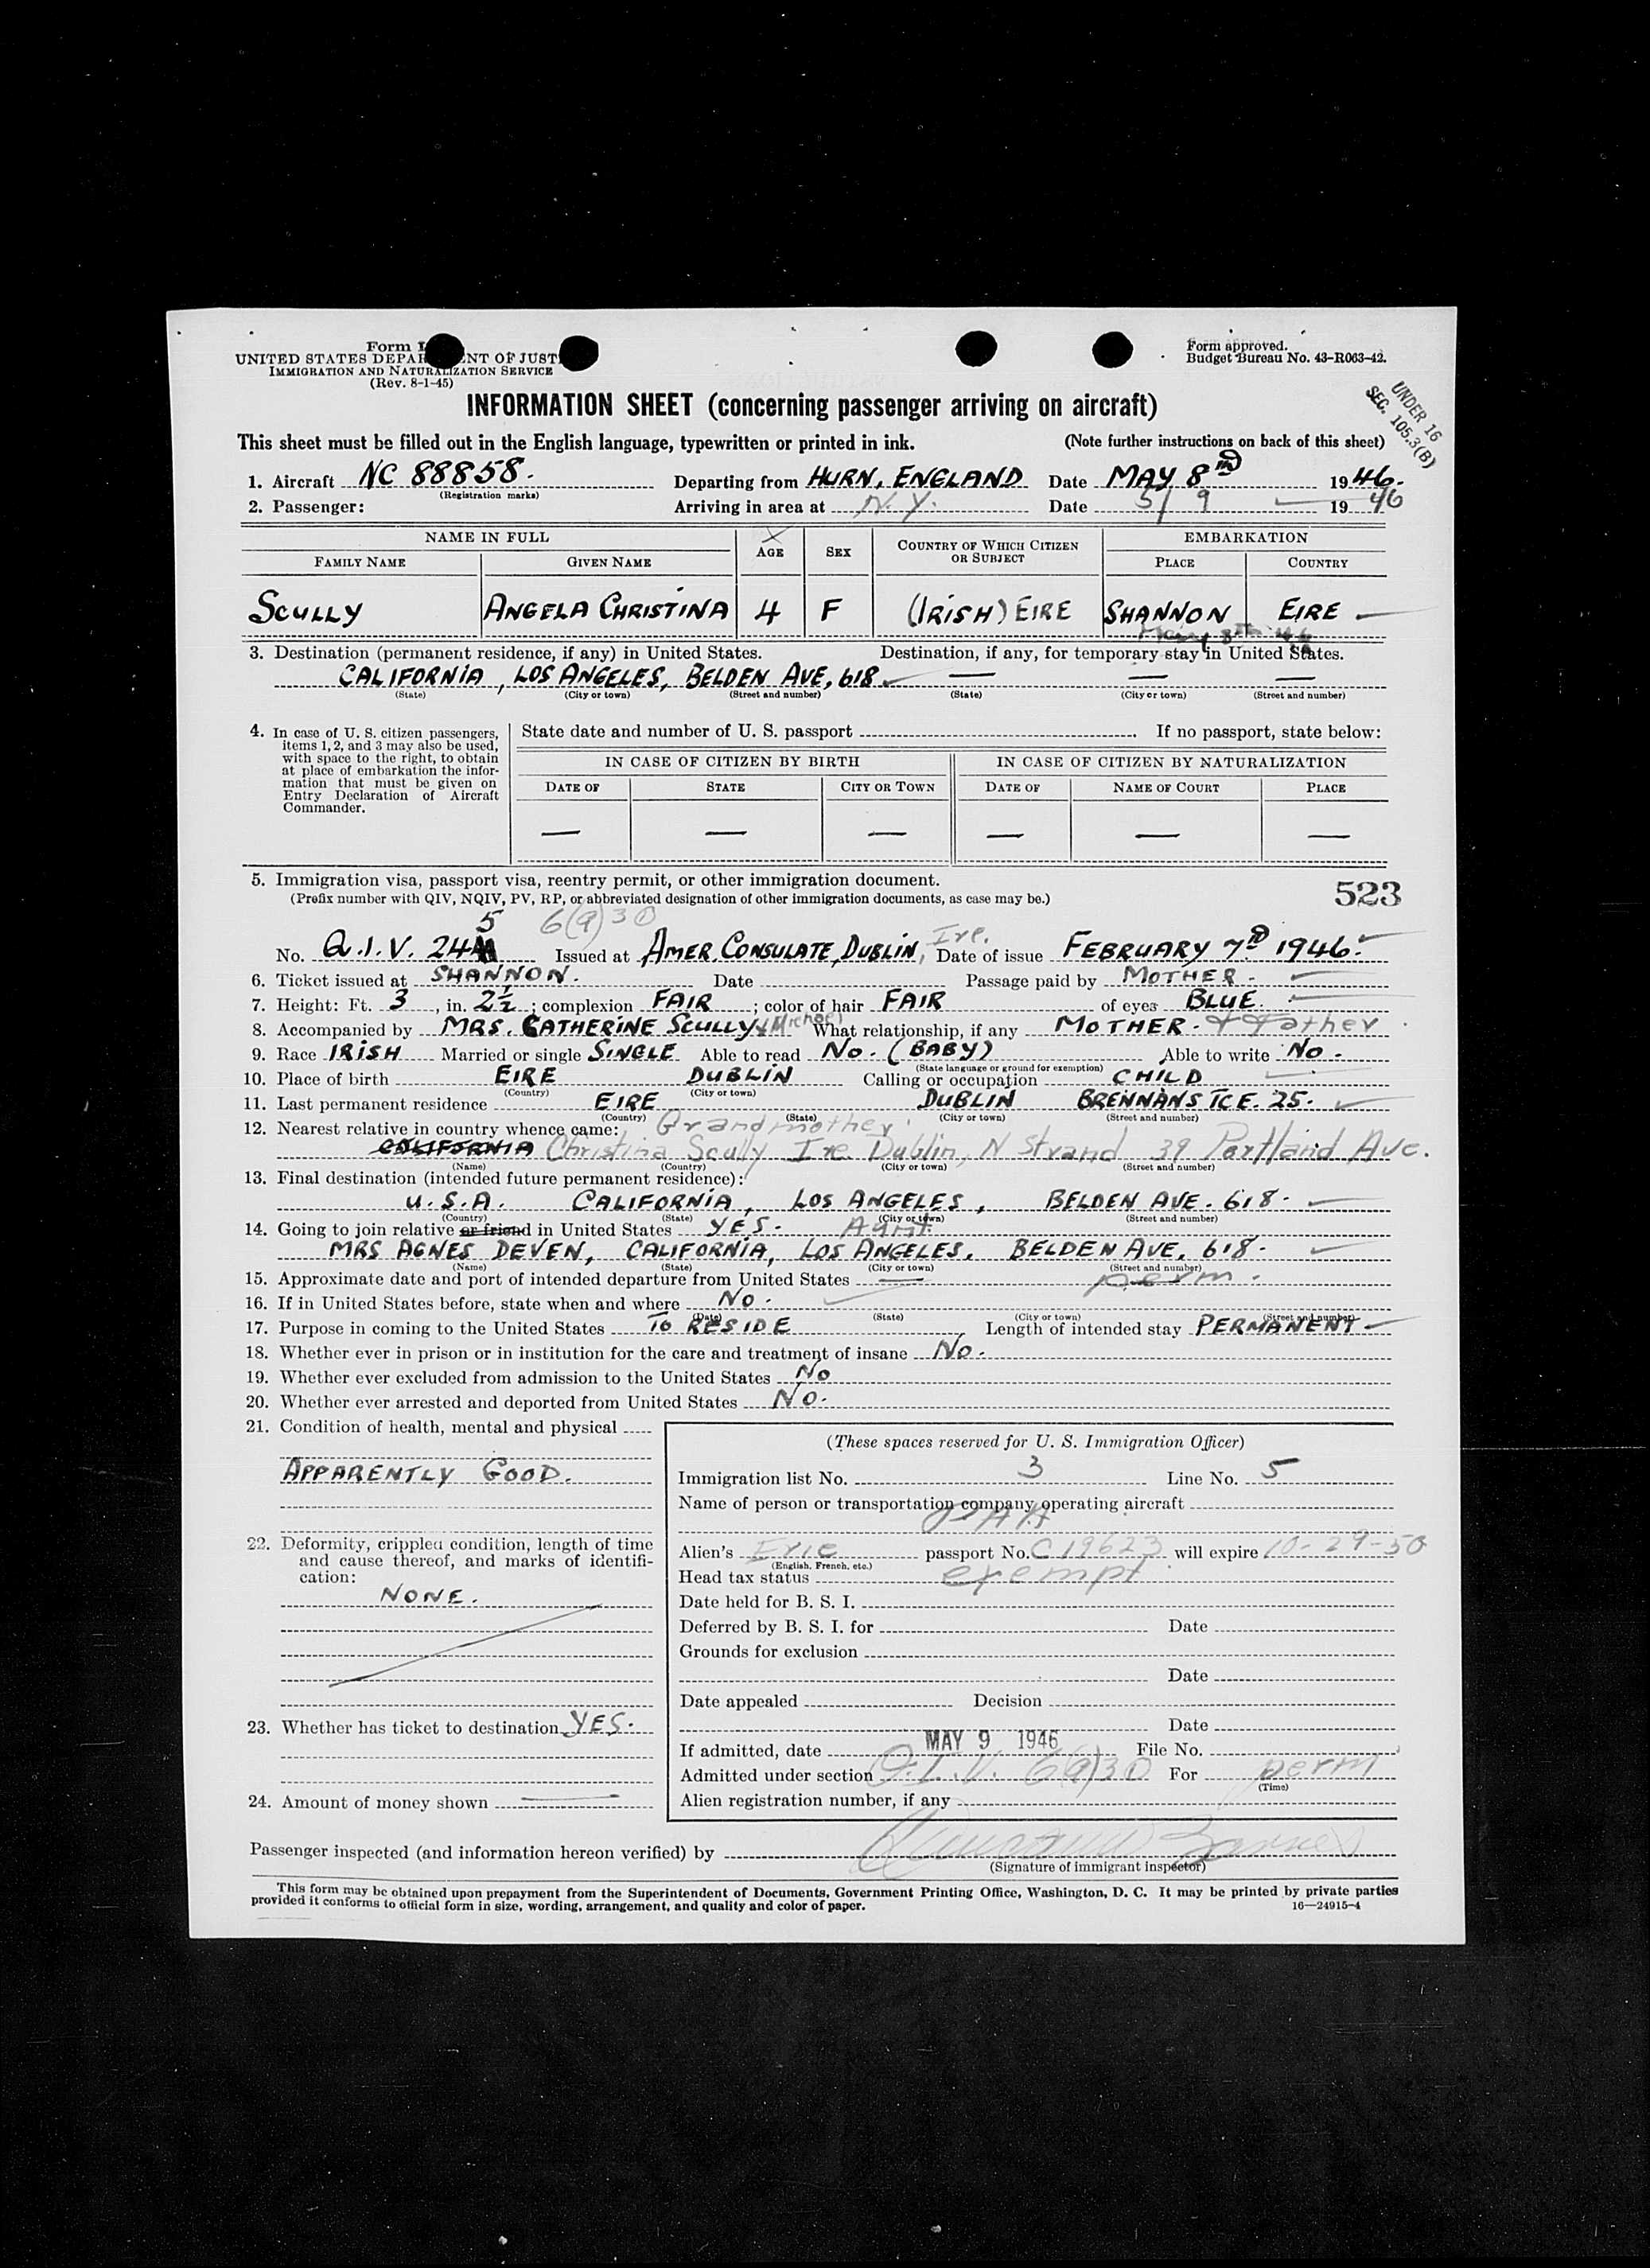 Form I
UNITED STATES DEPAR ENT OF JUST
IMMIGRATION AND NATURALIZATION SERVICE
(Rev. 8-1-45)
Form approved.
Budget Bureau No. 43-R063-42.
UNDER 16
SEC. 105.3(B)
INFORMATION SHEET (concerning passenger arriving on aircraft)
This sheet must be filled out in the English language, typewritten or printed in ink. (Note further instructions on back of this sheet)
1. Aircraft NC 88858. Departing from HURN, ENGLAND Date MAY 8th 1946.
(Registration marks)
2. Passenger: Arriving in area at N.Y. Date 5/9 1946
NAME IN FULL AGE SEX COUNTRY OF WHICH CITIZEN OR SUBJECT EMBARKATION
FAMILY NAME GIVEN NAME PLACE COUNTRY
SCULLY ANGELA CHRISTINA 4 F (IRISH) EIRE SHANNON EIRE
May 8th 46
3. Destination (permanent residence, if any) in United States. Destination, if any, for temporary stay in United States.
CALIFORNIA, LOS ANGELES, BELDEN AVE, 618 — — —
(State) (City or town) (Street and number) (State) (City or town) (Street and number)
4. In case of U. S. citizen passengers, items 1, 2, and 3 may also be used, with space to the right, to obtain at place of embarkation the information that must be given on Entry Declaration of Aircraft Commander.
State date and number of U. S. passport If no passport, state below:
IN CASE OF CITIZEN BY BIRTH IN CASE OF CITIZEN BY NATURALIZATION
DATE OF STATE CITY OR TOWN DATE OF NAME OF COURT PLACE
— — — — — —
5. Immigration visa, passport visa, reentry permit, or other immigration document.
(Prefix number with QIV, NQIV, PV, RP, or abbreviated designation of other immigration documents, as case may be.)
523
5 6(a)30
No. Q.I.V. 24 Issued at AMER. CONSULATE, DUBLIN, Ire. Date of issue FEBRUARY 7th 1946.
6. Ticket issued at SHANNON. Date Passage paid by MOTHER.
7. Height: Ft. 3, in. 2½; complexion FAIR; color of hair FAIR of eyes BLUE.
8. Accompanied by MRS. CATHERINE SCULLY & Michael What relationship, if any MOTHER. & Father
9. Race IRISH Married or single SINGLE Able to read No. (BABY) Able to write No.
(State language or ground for exemption)
10. Place of birth EIRE DUBLIN Calling or occupation CHILD
(Country) (City or town)
11. Last permanent residence EIRE DUBLIN BRENNANS TCE. 25.
(Country) (State) (City or town) (Street and number)
12. Nearest relative in country whence came: Grandmother
CALIFORNIA Christina Scully Ire. Dublin, N Strand 39 Portland Ave.
(Name) (Country) (City or town) (Street and number)
13. Final destination (intended future permanent residence):
U.S.A. CALIFORNIA, LOS ANGELES, BELDEN AVE. 618.
(Country) (State) (City or town) (Street and number)
14. Going to join relative or friend in United States YES. Aunt
MRS AGNES DEVEN, CALIFORNIA, LOS ANGELES, BELDEN AVE, 618.
(Name) (State) (City or town) (Street and number)
15. Approximate date and port of intended departure from United States — perm.
16. If in United States before, state when and where No.
(Date) (State) (City or town) (Street and number)
17. Purpose in coming to the United States To RESIDE Length of intended stay PERMANENT
18. Whether ever in prison or in institution for the care and treatment of insane No.
19. Whether ever excluded from admission to the United States No
20. Whether ever arrested and deported from United States No.
21. Condition of health, mental and physical
APPARENTLY GOOD.
22. Deformity, crippled condition, length of time and cause thereof, and marks of identification:
NONE.
23. Whether has ticket to destination YES.
24. Amount of money shown —
(These spaces reserved for U. S. Immigration Officer)
Immigration list No. 3 Line No. 5
Name of person or transportation company operating aircraft
PAA
Alien's Erie passport No. C 19623 will expire 10-29-50
(English, French, etc.)
Head tax status exempt
Date held for B. S. I.
Deferred by B. S. I. for Date
Grounds for exclusion
Date
Date appealed Decision
Date
If admitted, date MAY 9 1946 File No.
Admitted under section Q.I.V. 6(a)30 For perm
(Time)
Alien registration number, if any
Passenger inspected (and information hereon verified) by
(Signature of immigrant inspector)
This form may be obtained upon prepayment from the Superintendent of Documents, Government Printing Office, Washington, D. C. It may be printed by private parties
provided it conforms to official form in size, wording, arrangement, and quality and color of paper. 16—24915-4